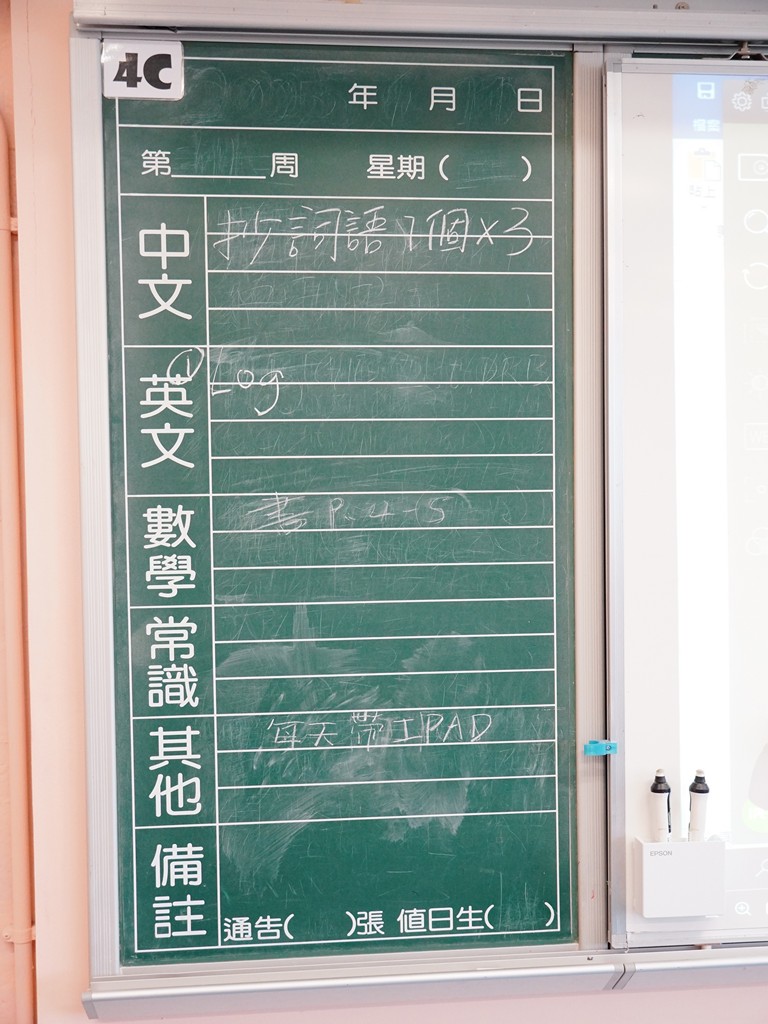 4C
年 月 日
第______周 星期( )
中文
抄詞語7個×3
英文
①Log
數學
書 P.4-5
常識
其他
每天帶IPAD
備註
通告( )張 值日生( )
檔案
貼上
EPSON